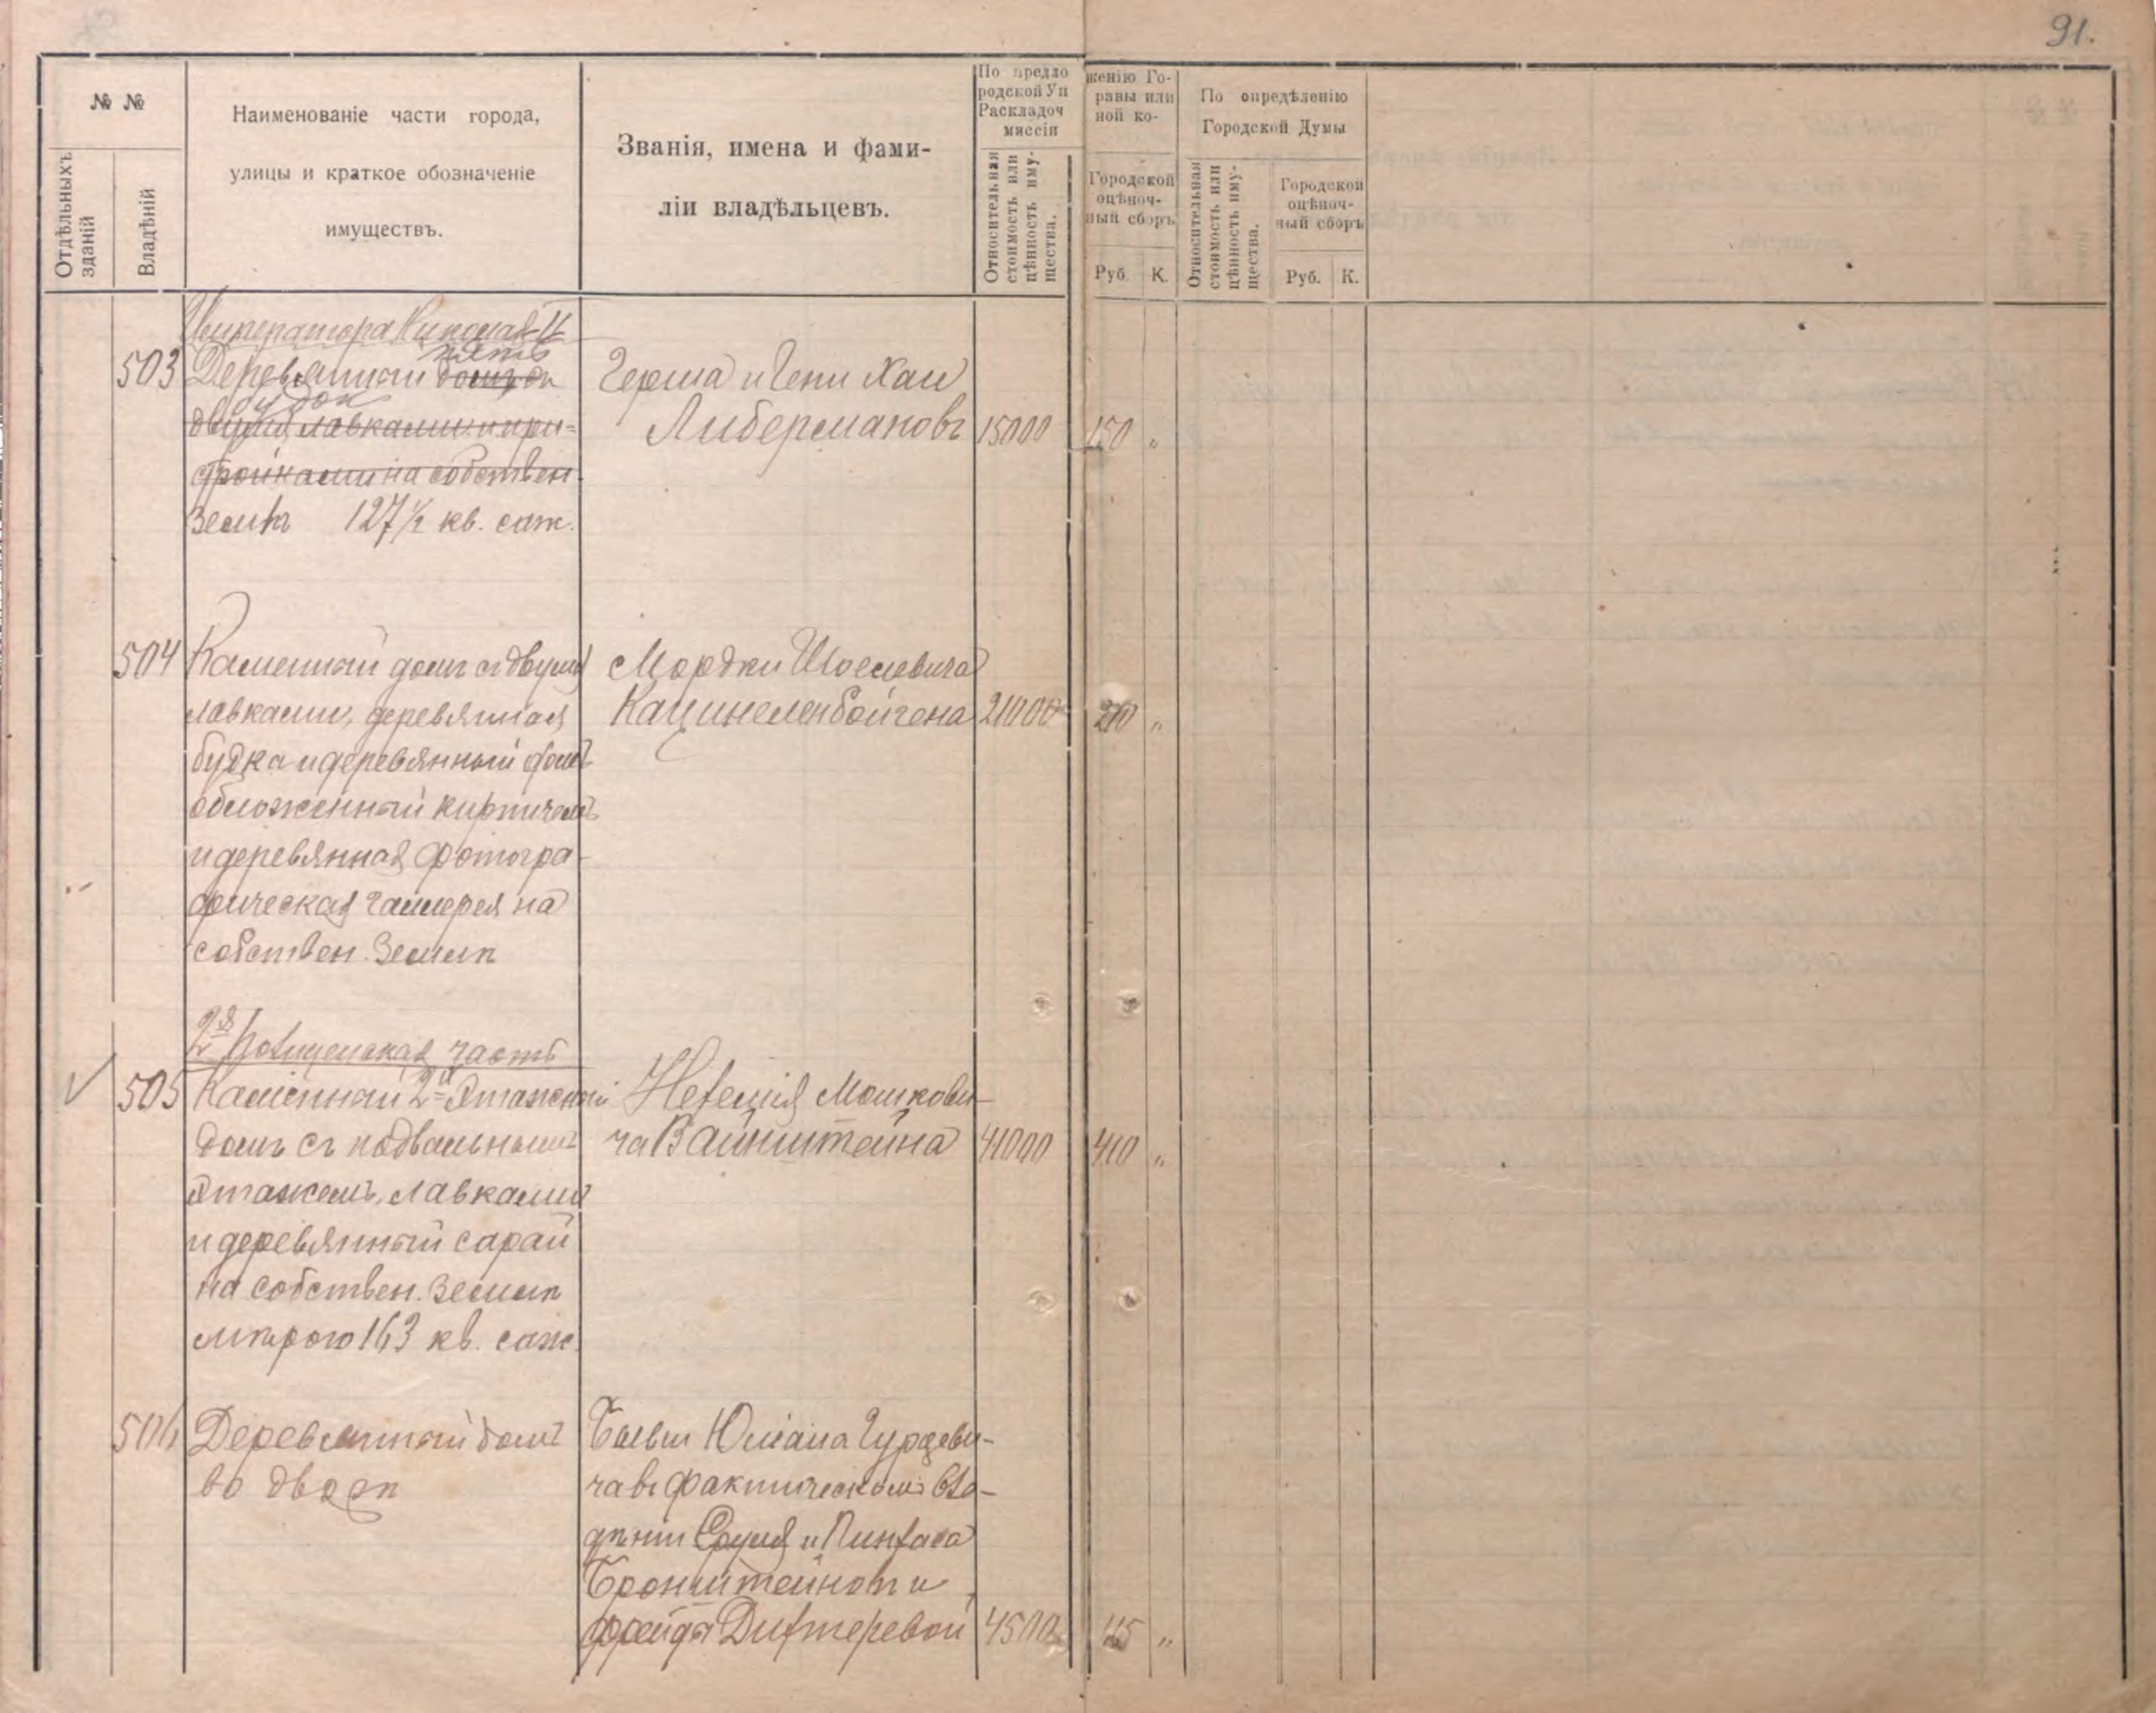 91.
№ №
Отдѣльныхъ зданій
Владѣній
Наименованіе части города,
улицы и краткое обозначеніе
имуществъ.
Званія, имена и фами-
ліи владѣльцевъ.
По предло
родской Уп
Раскладоч
миссіи
Относительная стоимость или цѣнность иму-щества.
женію Го-
равы или
ной ко-
Городской
оцѣноч-
ный сборъ
Руб. К.
По опредѣленію
Городской Думы
Относительная стоимость или цѣнность иму-щества.
Городской
оцѣноч-
ный сборъ
Руб. К.
Императора Николая II
пять
503 Деревянный домъ съ
будок
двумя лавками и при-
стройками на собствен
землѣ 127 1/2 кв. саж.
Герша и Гени Хаи
Либермановъ 15000 150 "
504 Каменный домъ съ двумя
лавками, деревянная
будка и деревянный домъ
обложенный кирпичемъ
и деревянная фотогра-
фическая галлерея на
собствен. землѣ
Мордки
Каценеленбойгена 21000 210 "
2я Полицейская часть
505 Каменный 2й этажный
домъ съ подвальнымъ
этажемъ, лавками
и деревянный сарай
на собствен. землѣ
мѣрою 163 кв. саж.
Нехемія Мошкови-
ча Вайнштейна 41000 410 "
506 Деревянный домъ
во дворѣ
Бывш Юліана Гурдеви-
ча въ фактическомъ вла-
дѣніи Сруля и Пинхаса
Бронштейновъ и
Фрейды Дихтеревой 4500 45 "